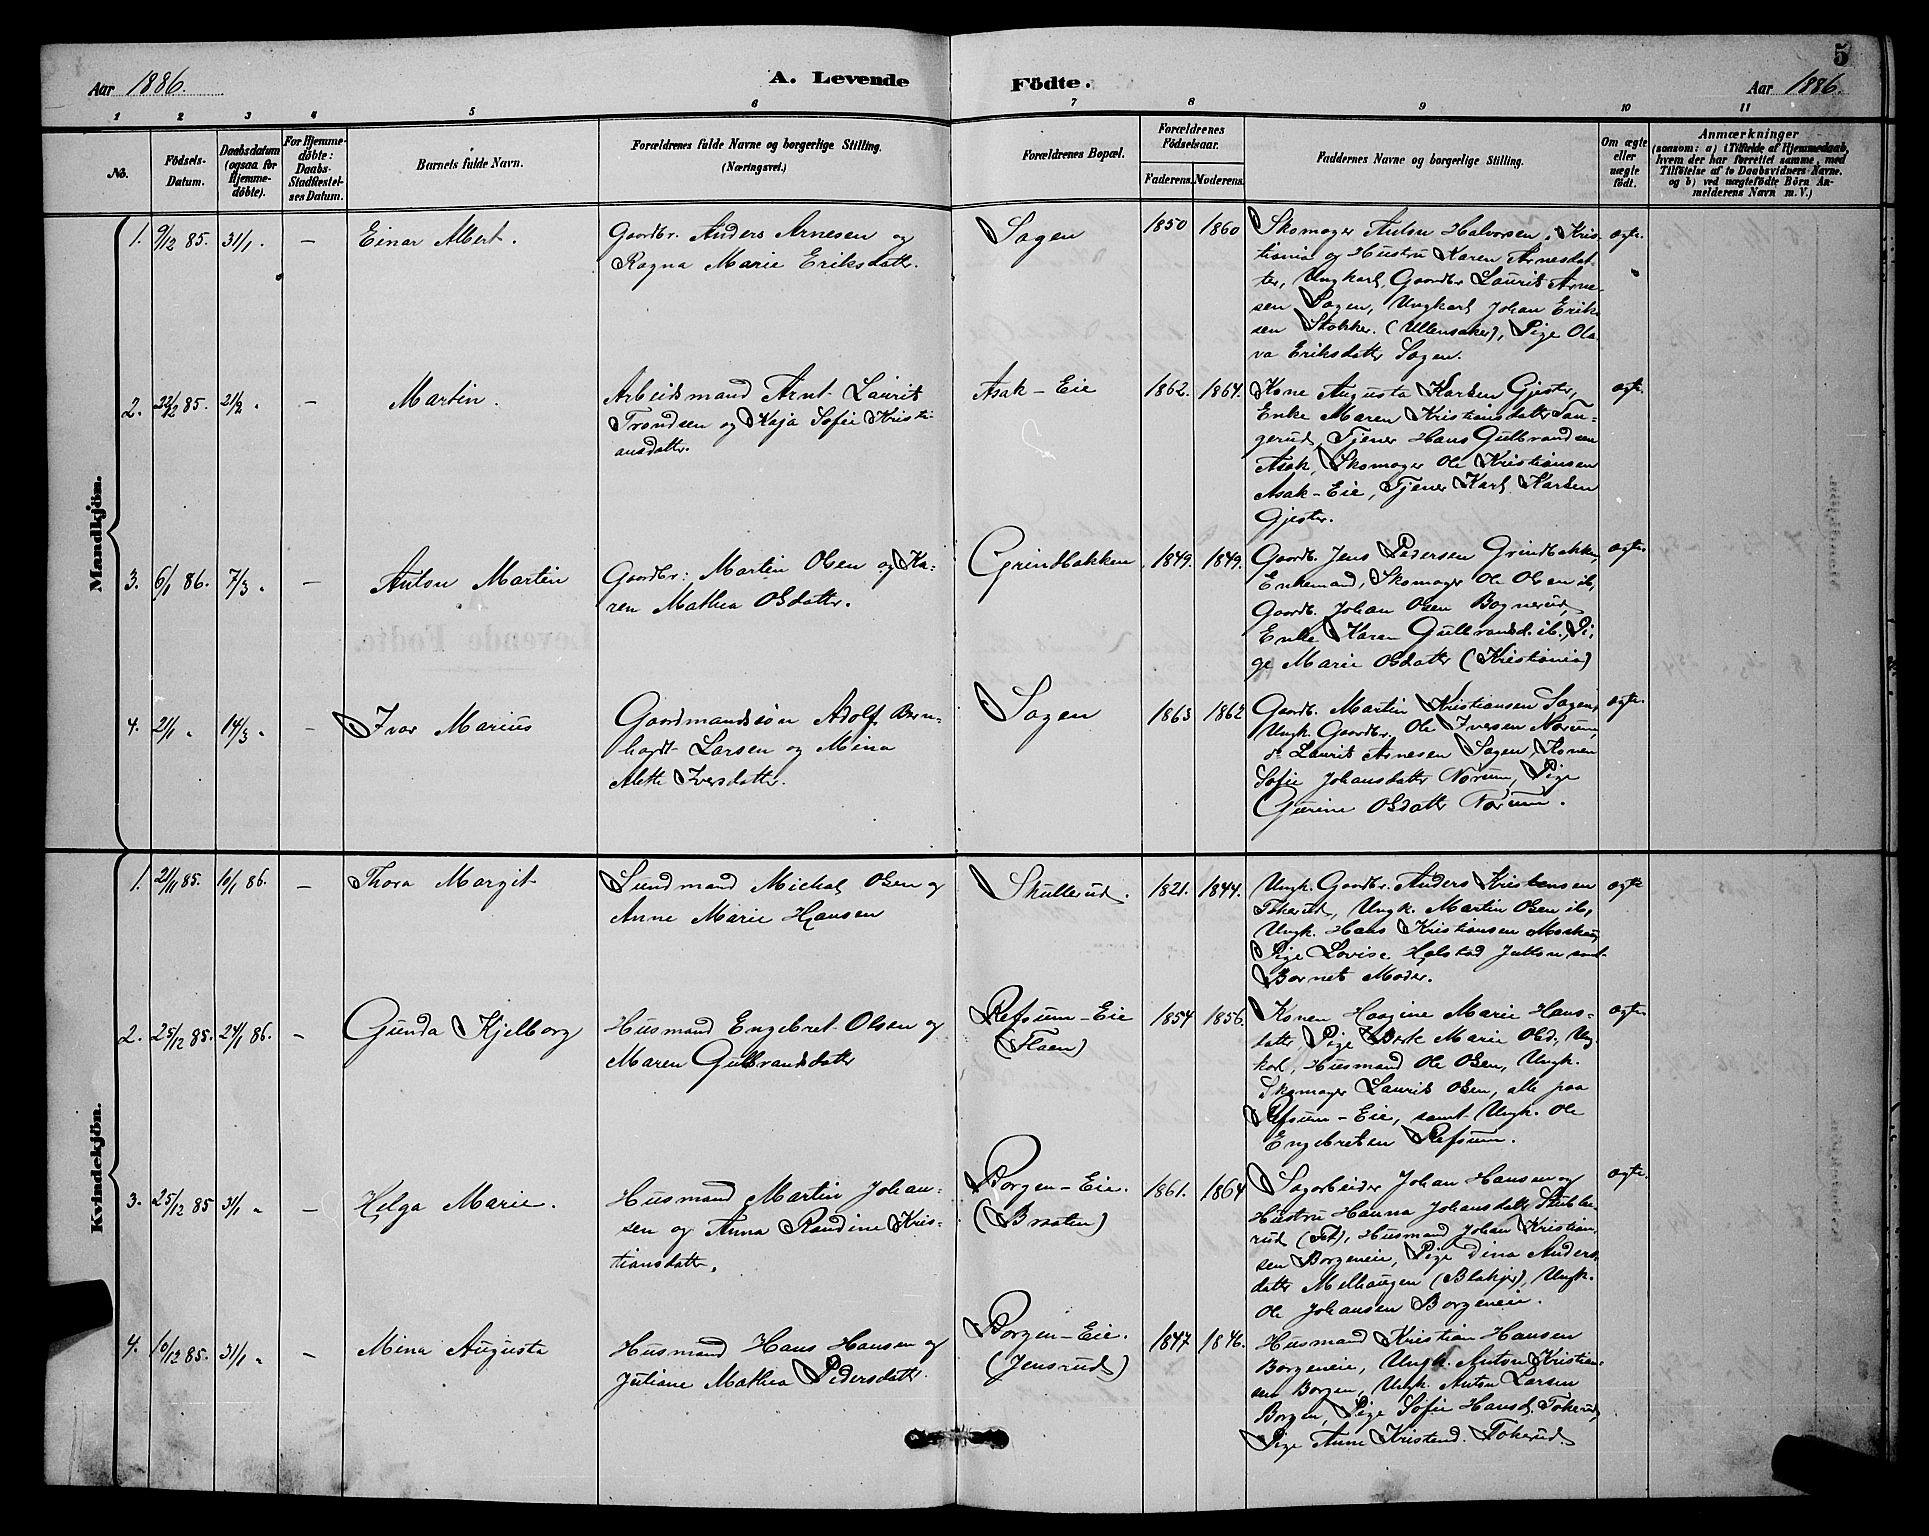 5
Aar 1886.
A. Levende Födte.
Aar 1886.
1 2 3 4 5 6 7 8 9 10 11
No.
Födsels-Datum.
Daabsdatum (ogsaa for Hjemme-döbte).
For Hjemme-döbte: Daabs-Stadfæstel-ses Datum.
Barnets fulde Navn.
Forældrenes fulde Navne og borgerlige Stilling.
(Næringsvei.)
Forældrenes Bopæl.
Forældrenes Födselsaar.
Faderens. Moderens.
Faddernes Navne og borgerlige Stilling.
Om ægte eller uægte födt.
Anmærkninger
(saasom: a) i Tilfælde af Hjemmedaab, hvem der har forrettet samme, med Tilföielse af to Daabsvidners Navne. og b) ved uægtefödte Börn An-melderens Navn m. V.)
Mandkjön.
1. 9/12 85. 31/1. – Einar Albert.
Gaardbr. Anders Arnesen og
Ragna Marie Eriksdattr.
Sagen
1850 1860
Skomager Anton Halvorsen, Kris-
tiania og Hustru Karen Arnesdat-
ter, Ungkarl, Gaardbr Laurits Arne-
sen Sagen, Ungkarl Johan Erik-
sen Stokker. (Ullensaker), Pige Ola-
va Eriksdattr Sagen.
ægte.
2. 22/12 85. 21/2. – Martin.
Arbeidsmand Arnt Laurits
Trondsen og Kaja Sofie Kristi-
ansdattr.
Asak-Eie
1862. 1864.
Kone Augusta Karlsen Gjester,
Enke Maren Kristiansdattr Tan-
gerud, Tjener Hans Gulbrandsen
Asak, Skomager Ole Kristiansen
Asak-Eie, Tjener Karl Karlsen
Gjester.
ægte.
3. 6/1 86. 7/3. – Anton Martin
Gaardbr. Martin Olsen og Ka-
ren Mathea Olsdattr.
Grindbakken
1849. 1849.
Gaardb. Jens Pedersen Grindbakken,
Enkemand, Skomager Ole Olsen ib,
Gaardb. Johan Olsen Bognerud,
Enke Karen Gulbrandsd. ib., Pi-
ge Marie Olsdattr (Kristiania)
ægte.
4. 21/1 " 14/3 " – Ivar Marius
Gaardmandssøn Adolf Bern-
hardt Larsen og Mina
Alette Iversdattr.
Sagen
1863 1862
Gaardb. Martin Kristiansen Sagen,
Ungk. Gaardbr. Ole Iversen Norum
do Laurits Arnesen Sagen, Konen
Sofie Johansdattr Norum, Pige
Gurine Olsdattr Norum.
ægte.
Kvindekjön.
1. 21/11 85. 10/1 86. – Thora Margit
Sundmand Michal Olsen og
Anne Marie Hansen
Skullerud.
1821. 1844.
Ungk. Gaardbr. Anders Kristensen
Tokerud, Ungk. Martin Olsen ib,
Ungk. Hans Kristiansen
Pige Lovise Hølstad samt
Barnets Moder.
ægte
2. 25/12 85. 24/1 86. – Gunda Kjelborg
Husmand Engebret Olsen og
Maren Gulbrandsdattr
Refsum-Eie
(Flaen)
1854 1856.
Konen Haagine Marie Hans-
dattr Pige Berte Marie Olsd, Ung-
karl, Husmand Ole Olsen, Ungk.
Skomager Laurits Olsen, alle paa
Refsum-Eie, samt Ungk. Ole
Engebretsen Refsum.
ægte.
3. 25/12 85 31/1 " – Helga Marie.
Husmand Martin Johan-
sen og Anna Randine Kris-
tiansdattr.
Borgen-Eie.
(Braaten)
1861. 1864
Sagarbeider Johan Hansen og
Hustru Hanna Johansdattr Stubbe-
rud (Fet), Husmand Johan Kristian-
sen Borgeneie, Pige Dina Anders-
datter Melhaugen (Blakjer), Ungk.
Ole Johansen Borgeneie.
ægte.
4. 16/12 85. 31/1 " – Mina Augusta
Husmand Hans Hansen og
Juliane Mathea Pedersdattr.
Borgen-Eie.
(Jensrud)
1847 1846.
Husmand Kristian Hansen
Borgeneie, Ungk. Anton Kristian-
sen Borgen, Ungk. Anton Larsen
Borgen, Pige Sofie Hansd. Tokerud,
Pige Anne Kristensd. Tokerud.